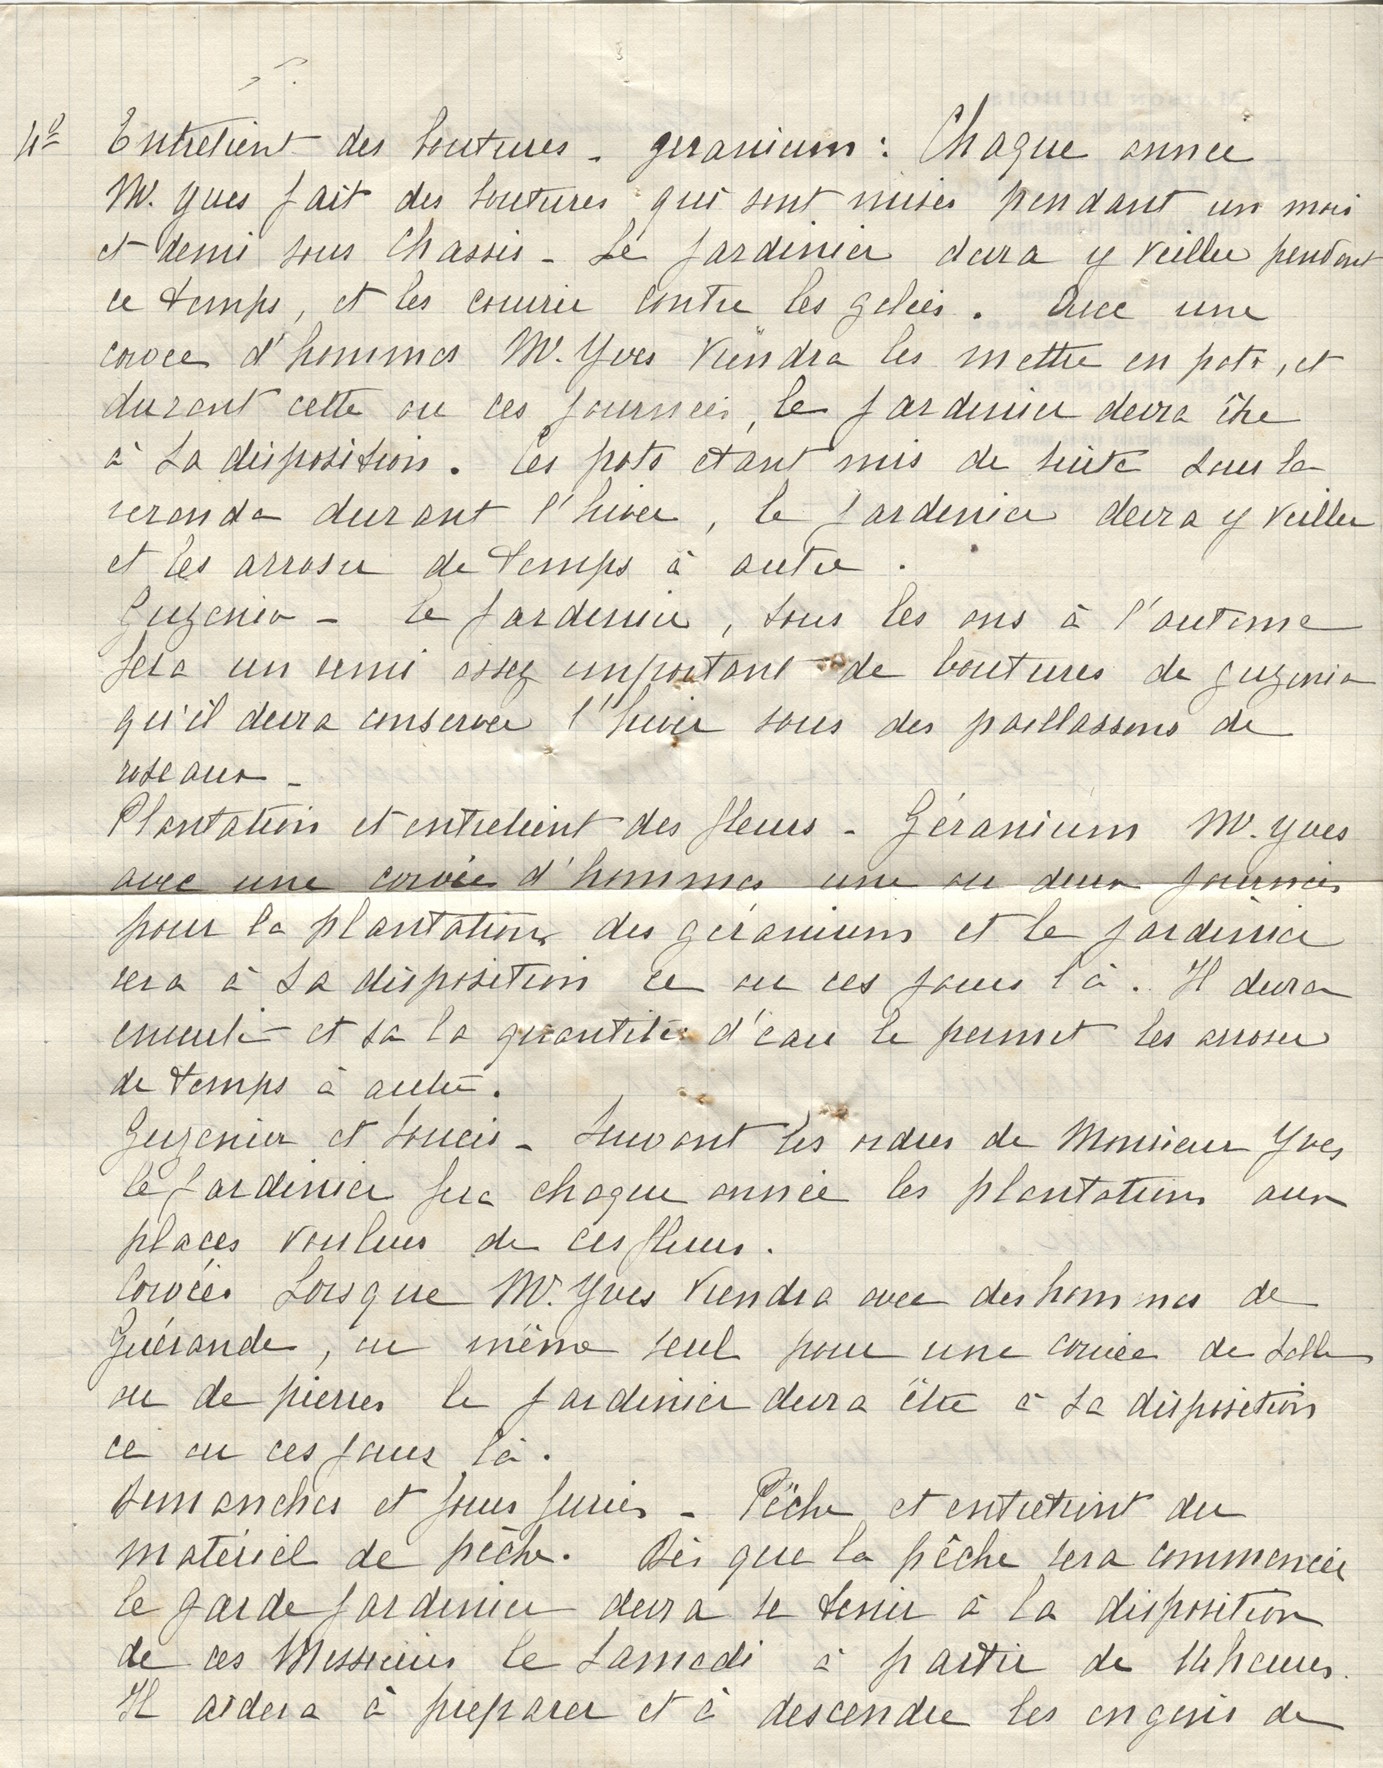 4º Entretient des boutures - geranium : Chaque année
M. Yves fait des boutures qui sont mises pendant un mois
et demi sous chassis - Le jardinier devra y veiller pendant
ce temps, et les couvrir contre les gelées. Avec une
corvée d'hommes M. Yves viendra les mettre en pots, et
durant cette ou ces journées, le jardinier devra être
à sa disposition. Ces pots étant mis de suite sous la
veranda durant l'hiver, le jardinier devra y veiller
et les arroser de temps à autre.
Guzenia - Le jardinier, tous les ans à l'automne
fera un semi assez important de boutures de guzenia
qu'il devra conserver l'hiver sous des paillassons de
roseaux -
Plantation et entretient des fleurs - Géranium M. Yves
avec une corvée d'hommes une ou deux journées
pour la plantation des géraniums et le jardinier
sera à sa disposition ce ou ces jours là. Il devra
ensuite et sa la quantitée d'eau le permet les arroser
de temps à autre.
Guzenia et Soucis - Suivant les ordres de Monsieur Yves
le jardinier fera chaque année les plantations aux
places voulues de ces fleurs.
Corvées Lorsque M. Yves viendra avec des hommes de
Guérande, ou même seul pour une corvée de sable
ou de pierres le jardinier devra être à sa disposition
ce ou ces jours là.
Dimanches et jours fériés - Pêche et entretient du
matériel de pêche. Dès que la pêche sera commencée
le garde jardinier devra se tenir à la disposition
de ces Messieurs le Samedi à partir de 14 heures.
Il aidera à preparer et à descendre les engins de